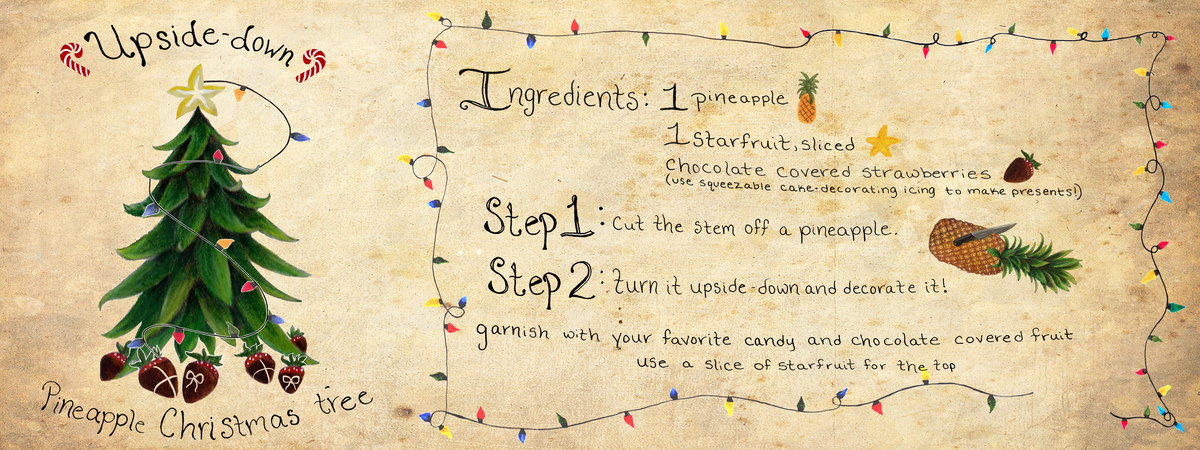 Upside-down
Pineapple Christmas tree
Ingredients: 1 pineapple
1 Starfruit, sliced
Chocolate covered strawberries
(use squeezable cake-decorating icing to make presents!)
Step 1: Cut the stem off a pineapple.
Step 2: turn it upside-down and decorate it!
garnish with your favorite candy and chocolate covered fruit
use a slice of starfruit for the top